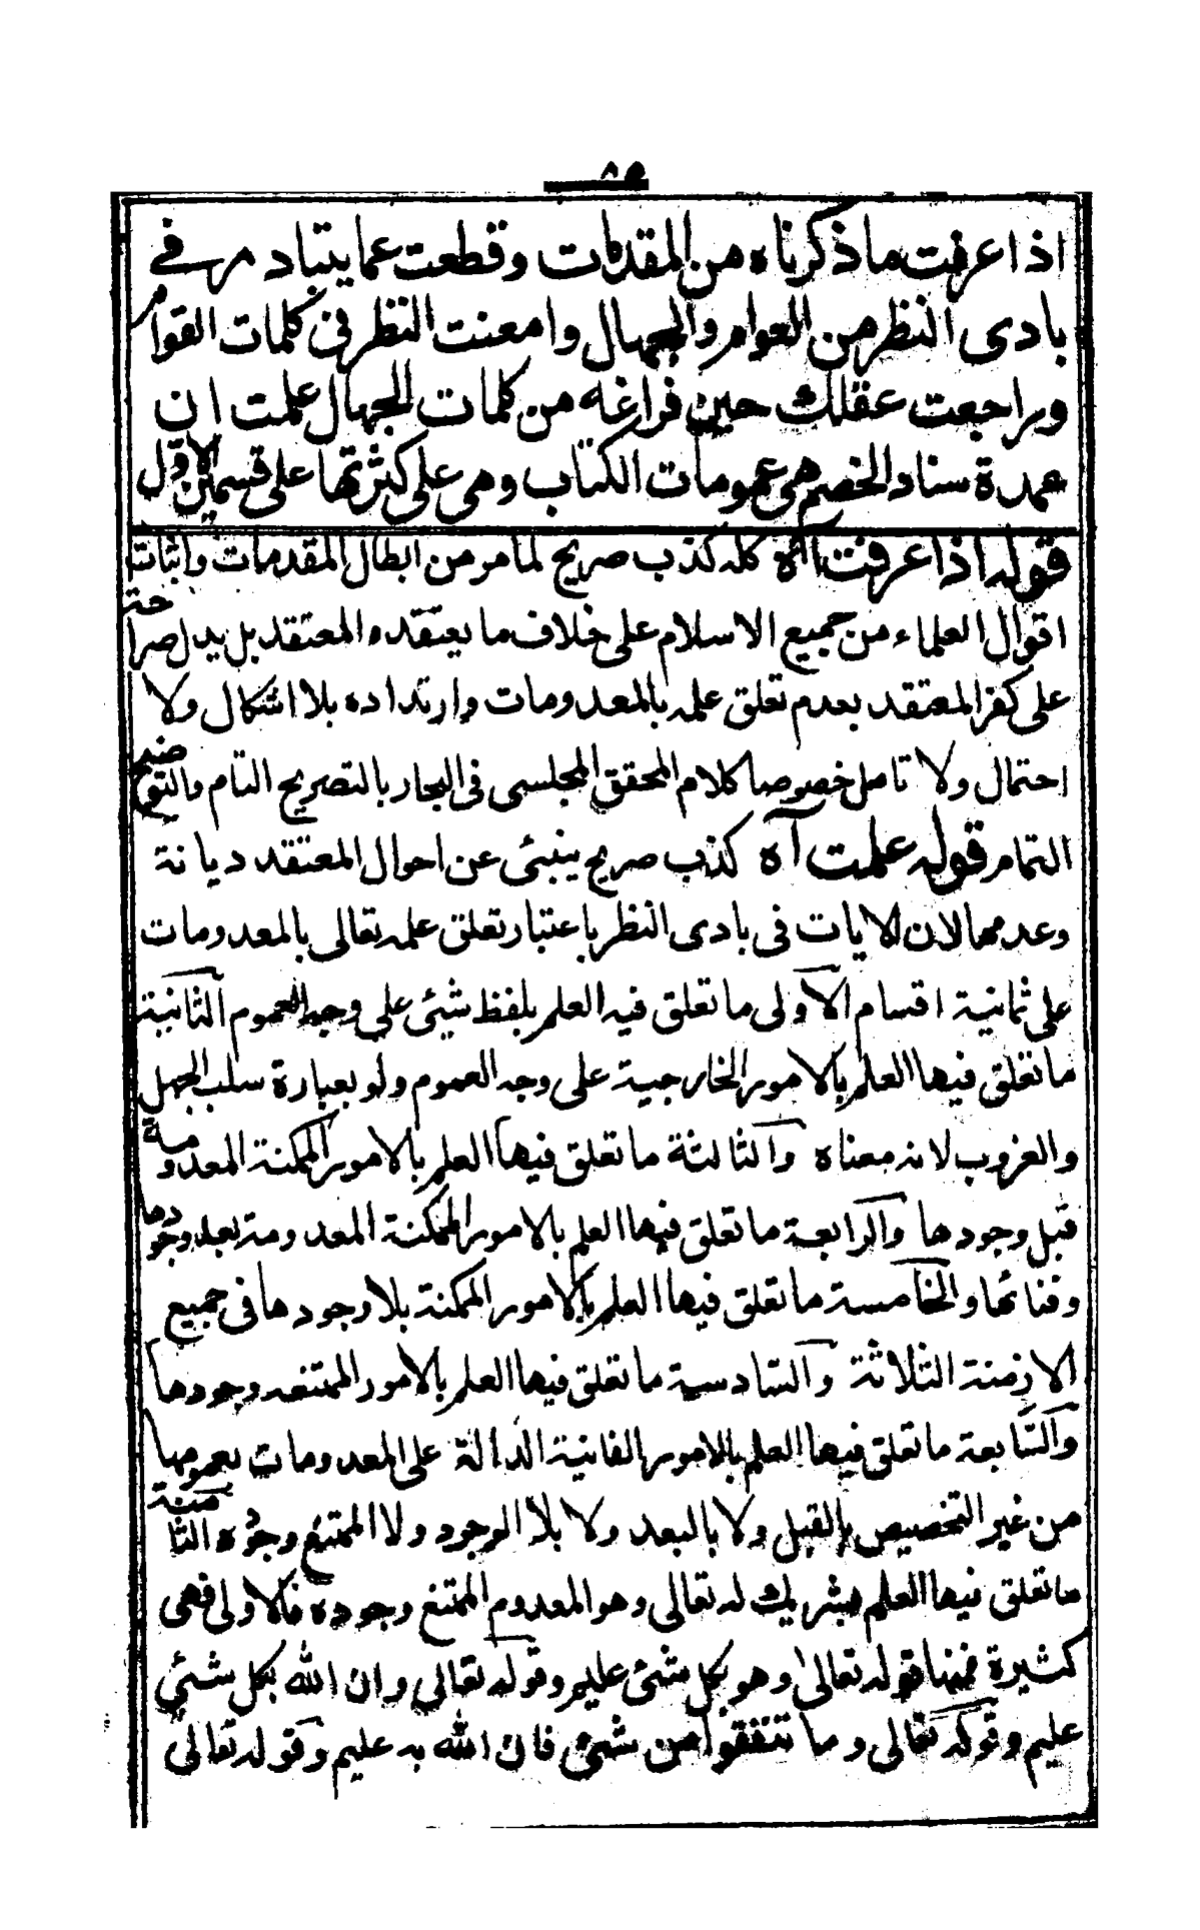 ٨٥
اذا عرفت ما ذكرناه من المقدمات وقطعت عما يتبادر في
بادى النظر من العوام والجهال وامعنت النظر في كلمات القوام
وراجعت عقلك حين فراغه من كلمات الجهال علمت ان
عمدة سناد الخصم هى عمومات الكتاب وهى على كثرتها على قسمين الاول
قوله اذا عرفت اه كله كذب صريح لما مر من ابطال المقدمات واثباتنا
اقوال العلماء من جميع الاسلام على خلاف ما يعتقده المعتقد بل يدل صراحة
على كفر المعتقد بعدم تعلق علمه بالمعدومات وارتداده بلا اشكال ولا
احتمال ولا تامل خصوصا كلام المحقق المجلسى فى البحار بالتصريح التام والتوضيح
التمام قوله علمت آه كذب صريح ينبئ عن احوال المعتقد ديانة
وعدمها لان الايات فى بادى النظر باعتبار تعلق علمه تعالى بالمعدومات
على ثمانية اقسام الاولى ما تعلق فيه العلم بلفظ شيئى على وجه العموم الثانية
ما تعلق فيها العلم بالامور الخارجية على وجه العموم ولو بعبارة سلب الجهل
والعزوب لانه معناه والثالثة ما تعلق فيها العلم بالامور الممكنة المعدومة
قبل وجودها والرابعة ما تعلق فيها العلم بالامور الممكنة المعدومة بعد وجودها
وفنائها والخامسة ما تعلق فيها العلم بالامور الممكنة بلا وجودها فى جميع
الازمنة الثلاثة والسادسية ما تعلق فيها العلم بالامور الممتنعه وجودها
والسابعة ما تعلق فيها العلم بالامور الفانية الدالة على المعدومات بعمومها
من غير التخصيص بالقبل ولا بالبعد ولا بلا الوجود ولا الممتنع وجوده الثامنة
ما تعلق فيها العلم بشريك له تعالى وهو المعدوم الممتنع وجوده فالاولى فهى
كثيرة فمنها قوله تعالى وهو بكل شئ عليم وقوله تعالى وان الله بكل شئي
عليم وقوله تعالى وما تنفقوا من شئ فان الله به عليم وقوله تعالى